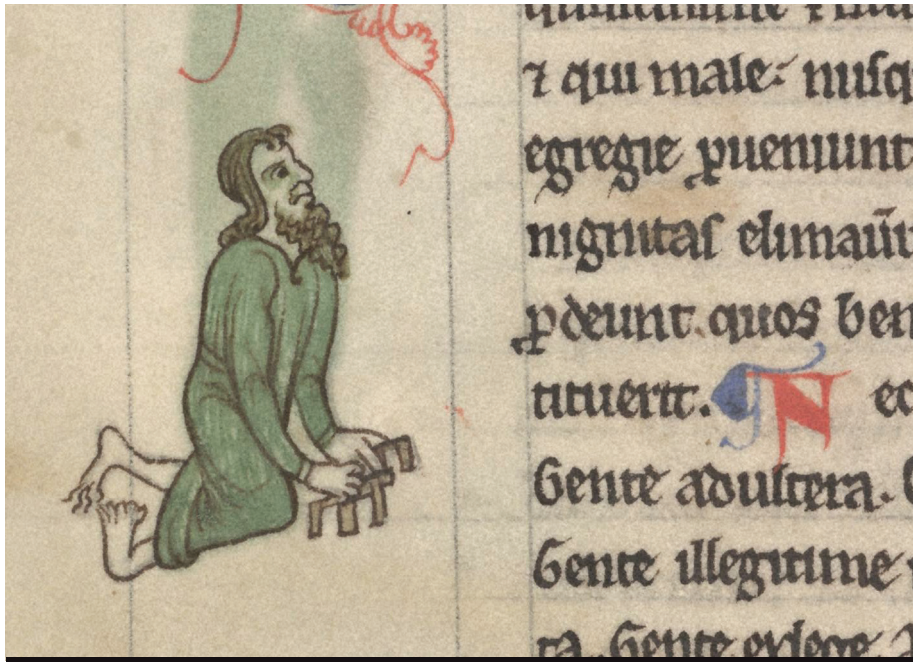 ⁊ qui male: nusq
egregie ꝓueniunt
nignitas elimau̅
ꝓdeunt. quos ben
tituerit. N ec
Gente adultera.
Gente illegitime
ta. Gente exlege.